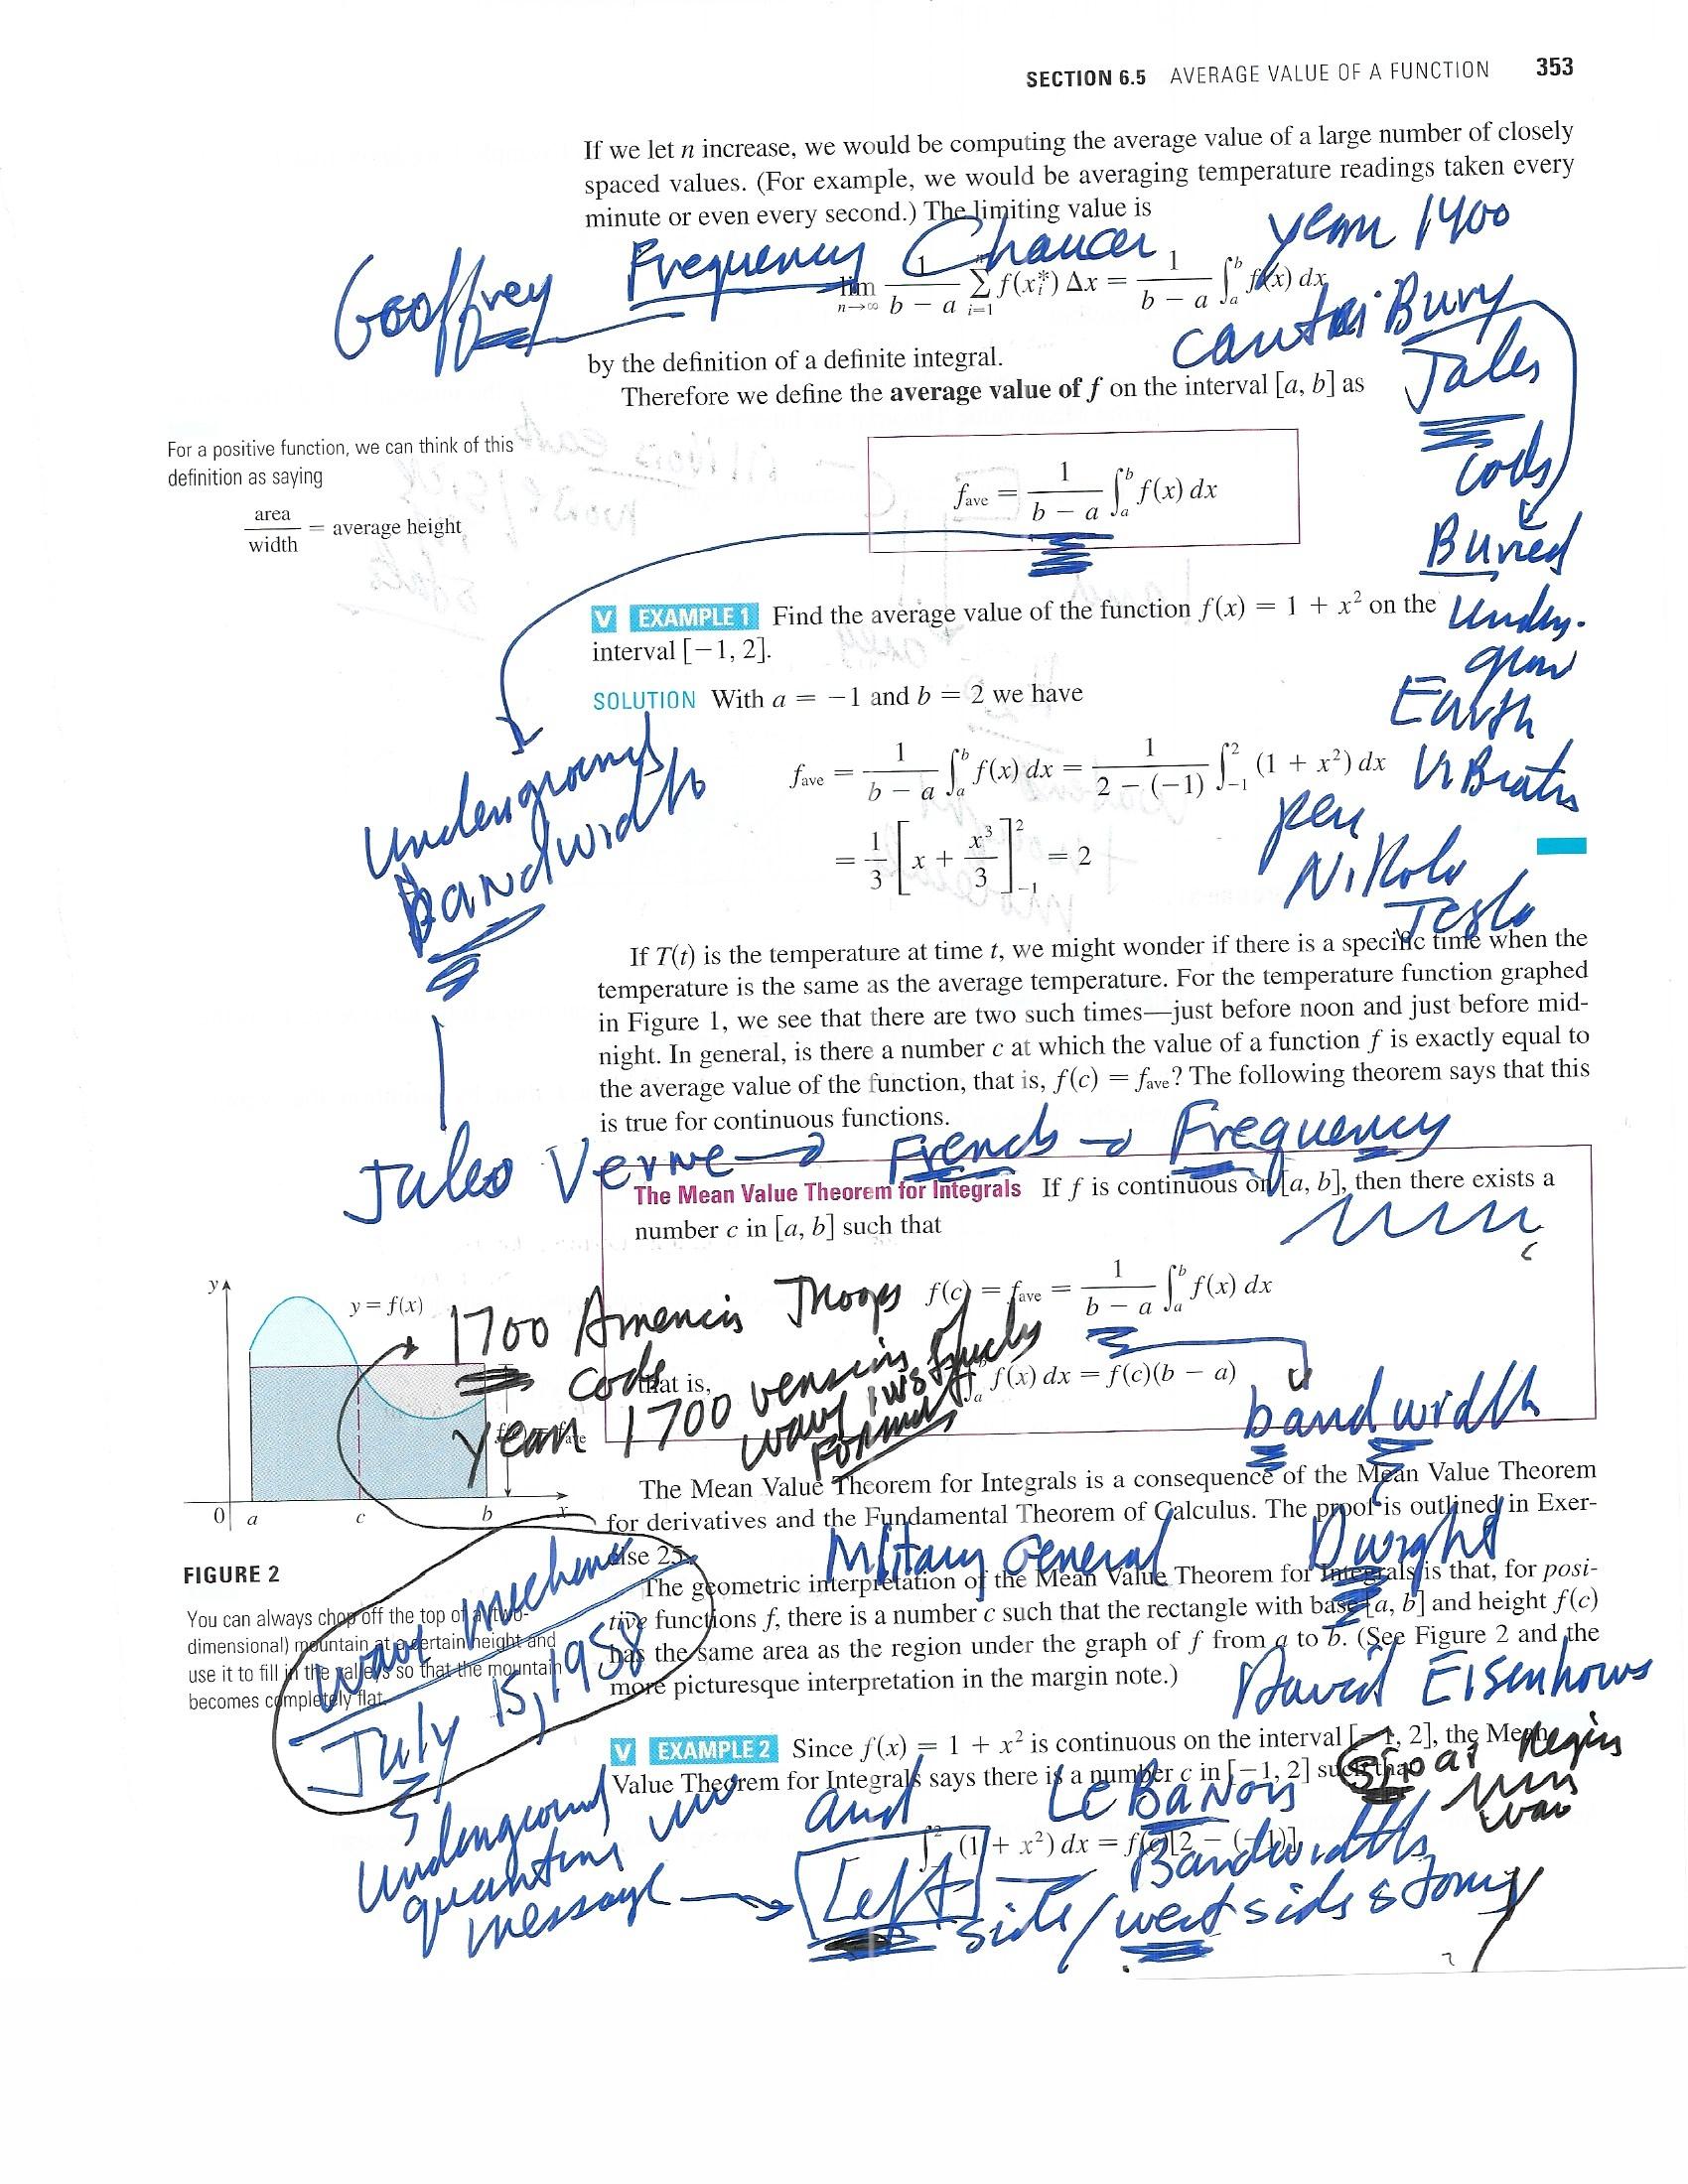 SECTION 6.5 AVERAGE VALUE OF A FUNCTION 353
If we let n increase, we would be computing the average value of a large number of closely
spaced values. (For example, we would be averaging temperature readings taken every
minute or even every second.) The limiting value is
Geoffrey Frequency Chaucer year 1400
lim n→∞ 1/(b − a) Σ i=1 n f(xᵢ*) Δx = 1/(b − a) ∫ₐᵇ f(x) dx
by the definition of a definite integral.
Therefore we define the average value of f on the interval [a, b] as
Bury
Tales
For a positive function, we can think of this
definition as saying
area/width = average height
f_ave = 1/(b − a) ∫ₐᵇ f(x) dx
Buried
V EXAMPLE 1 Find the average value of the function f(x) = 1 + x² on the
interval [−1, 2].
Earth
SOLUTION With a = −1 and b = 2 we have
f_ave = 1/(b − a) ∫ₐᵇ f(x) dx = 1/(2 − (−1)) ∫₋₁² (1 + x²) dx
= 1/3 [x + x³/3]₋₁² = 2
Underground
Bandwidth
Nikola
Tesla
If T(t) is the temperature at time t, we might wonder if there is a specific time when the
temperature is the same as the average temperature. For the temperature function graphed
in Figure 1, we see that there are two such times—just before noon and just before mid-
night. In general, is there a number c at which the value of a function f is exactly equal to
the average value of the function, that is, f(c) = f_ave? The following theorem says that this
is true for continuous functions.
Jules Verne → French → Frequency
The Mean Value Theorem for Integrals If f is continuous on [a, b], then there exists a
number c in [a, b] such that
f(c) = f_ave = 1/(b − a) ∫ₐᵇ f(x) dx
1700 Troops
Code
that is, ∫ₐᵇ f(x) dx = f(c)(b − a)
year 1700
bandwidth
y
y = f(x)
0 a c b x
FIGURE 2
You can always chop off the top of a (two-
dimensional) mountain at a certain height and
use it to fill in the valleys so that the mountain
becomes completely flat.
The Mean Value Theorem for Integrals is a consequence of the Mean Value Theorem
for derivatives and the Fundamental Theorem of Calculus. The proof is outlined in Exer-
cise 25.
Military General Dwight
The geometric interpretation of the Mean Value Theorem for Integrals is that, for posi-
tive functions f, there is a number c such that the rectangle with base [a, b] and height f(c)
has the same area as the region under the graph of f from a to b. (See Figure 2 and the
more picturesque interpretation in the margin note.)
David
wave
July 15, 1958
V EXAMPLE 2 Since f(x) = 1 + x² is continuous on the interval [−1, 2], the Mean
Value Theorem for Integrals says there is a number c in [−1, 2] such that
underground
quantum
message → Left side/west side story
and LeBanon
Bandwidths
∫₋₁² (1 + x²) dx = f(c)[2 − (−1)]